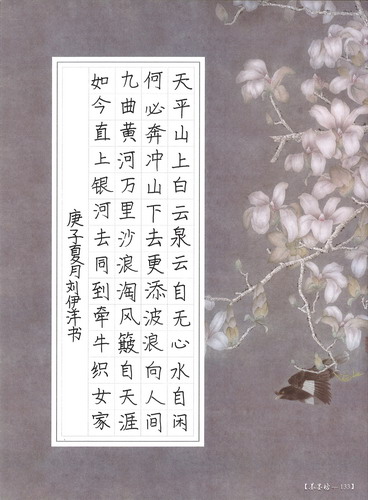 天平山上白云泉云自无心水自闲
何必奔冲山下去更添波浪向人间
九曲黄河万里沙浪淘风簸自天涯
如今直上银河去同到牵牛织女家
庚子夏月刘伊洋书
【墨墨坊—133】